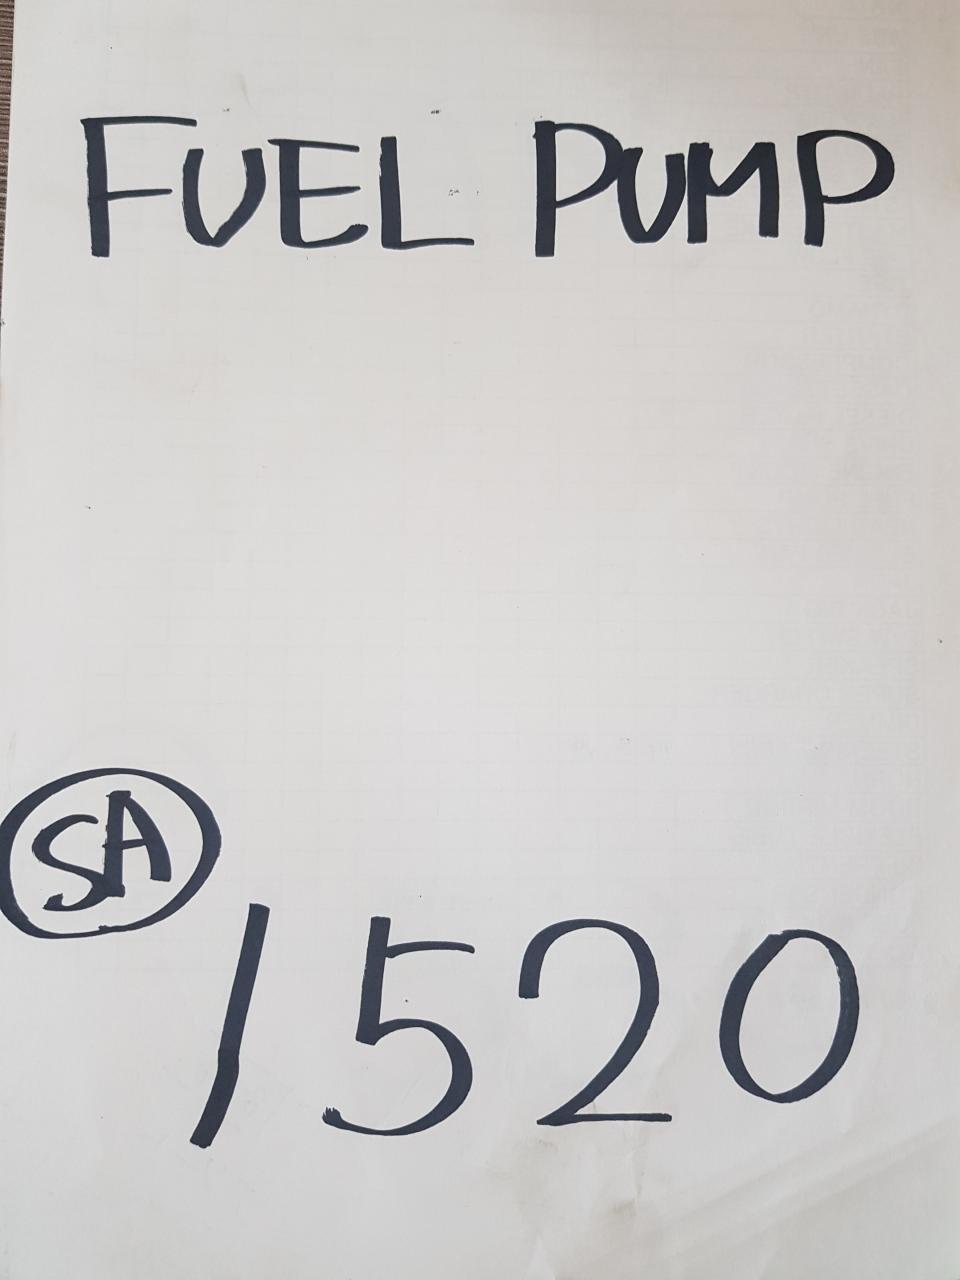 FUEL PUMP
SA
1520